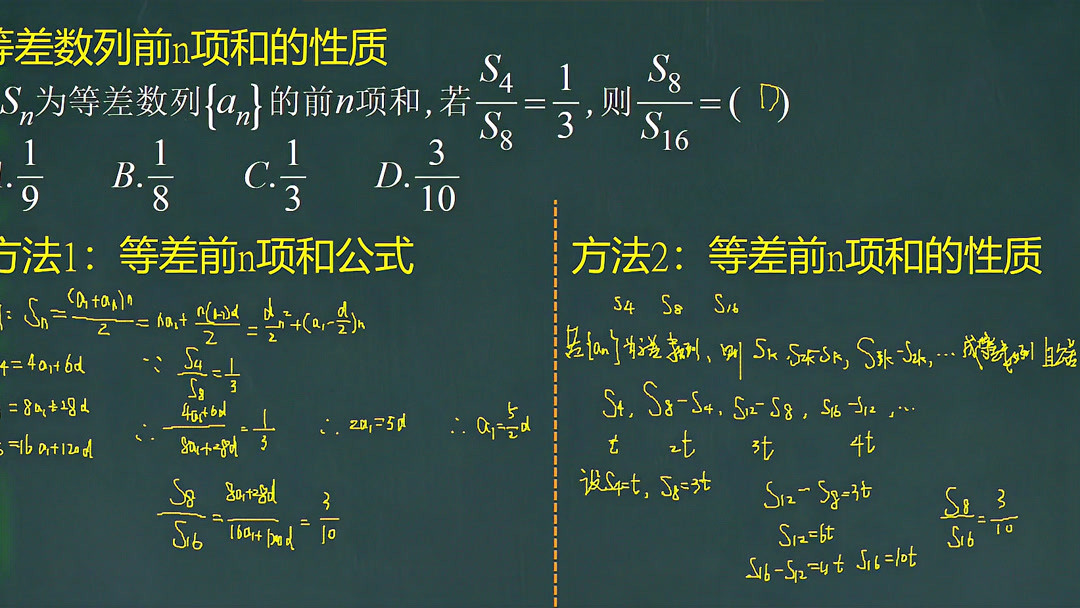 等差数列前n项和的性质
Sn为等差数列{an}的前n项和,若S4/S8=1/3,则S8/S16=( D )
1/9 B.1/8 C.1/3 D.3/10
方法1：等差前n项和公式
Sn=(a1+an)n/2=na1+n(n-1)d/2=d/2n²+(a1-d/2)n
=4a1+6d ∵ S4/S8=1/3
=8a1+28d ∴ 4a1+6d/8a1+28d=1/3 ∴ 2a1=5d ∴ a1=5/2d
=16a1+120d
S8/S16=8a1+28d/16a1+120d=3/10
方法2：等差前n项和的性质
S4 S8 S16
若{an}为等差数列,则Sk,S2k-Sk,S3k-S2k,…成等差数列且公差
S4,S8-S4,S12-S8,S16-S12,…
t 2t 3t 4t
设S4=t,S8=3t
S12-S8=3t
S12=6t
S16-S12=4t S16=10t
S8/S16=3/10